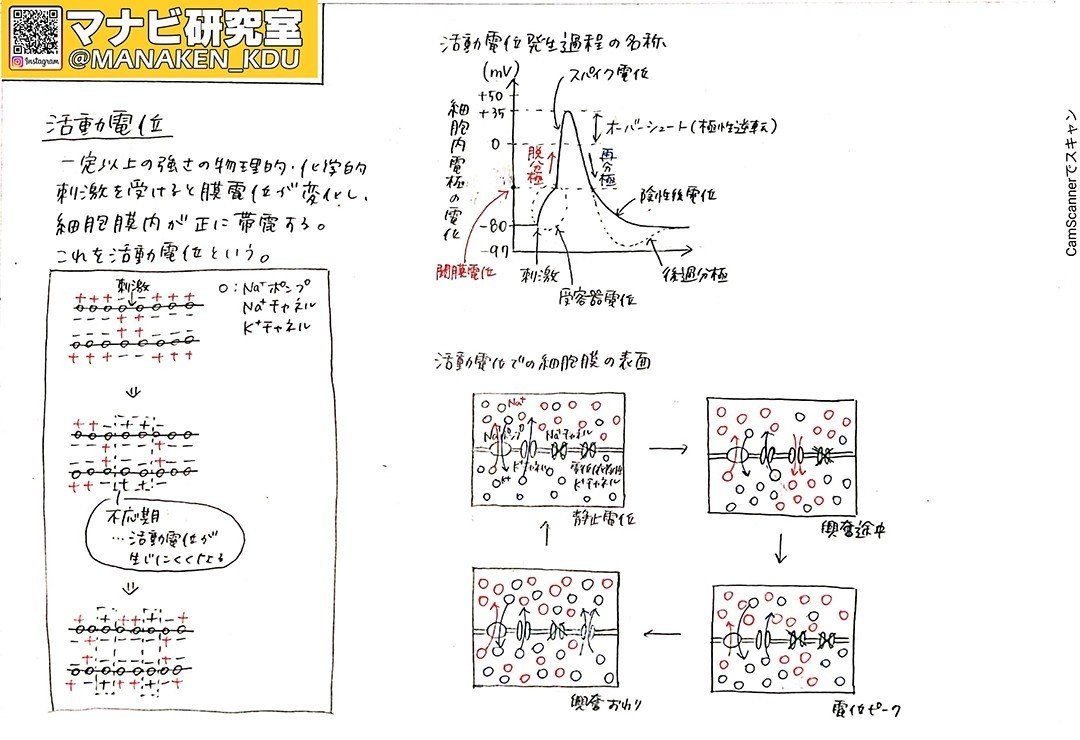 マナビ研究室
@MANAKEN_KDU
Instagram
活動電位
一定以上の強さの物理的・化学的
刺激を受けると膜電位が変化し、
細胞膜内が正に帯電する。
これを活動電位という。
刺激
○:Na⁺ポンプ
Na⁺チャネル
K⁺チャネル
+++--+++
---++---
---++---
+++--+++
⇓
不応期
…活動電位が
生じにくくなる
⇓
活動電位発生過程の名称
(mV)
+50
+35
0
-80
-97
細胞内電極の電化
スパイク電位
オーバーシュート(極性逆転)
脱分極
再分極
陰性後電位
閾膜電位
刺激
受容器電位
後過分極
活動電位での細胞膜の表面
Na⁺
Naポンプ
Na⁺チャネル
K⁺チャネル
K⁺
電位依存性
K⁺チャネル
静止電位
→
興奮途中
↓
電位ピーク
←
興奮おわり
↑
CamScannerでスキャン